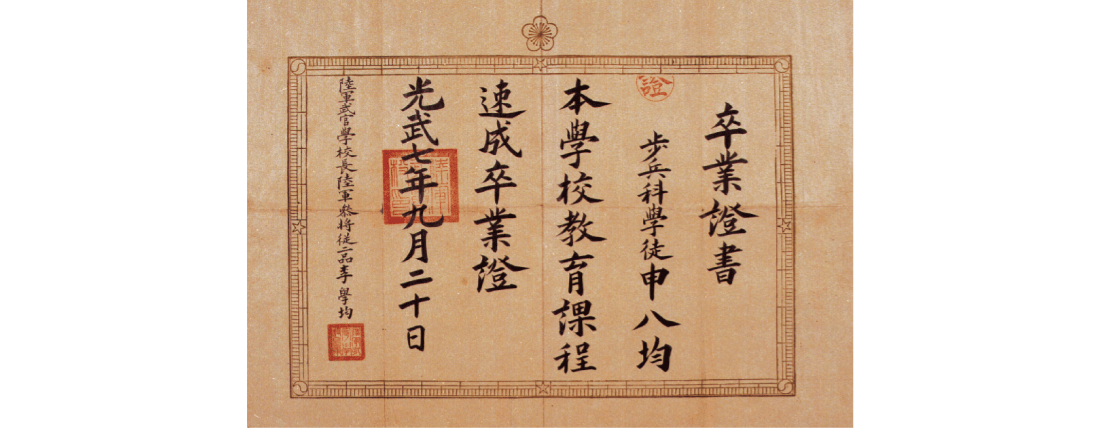 卒業證書
證
步兵科學徒申八均
本學校敎育課程
速成卒業證
光武七年九月二十日
陸軍武官學校長陸軍叅將從二品李學均